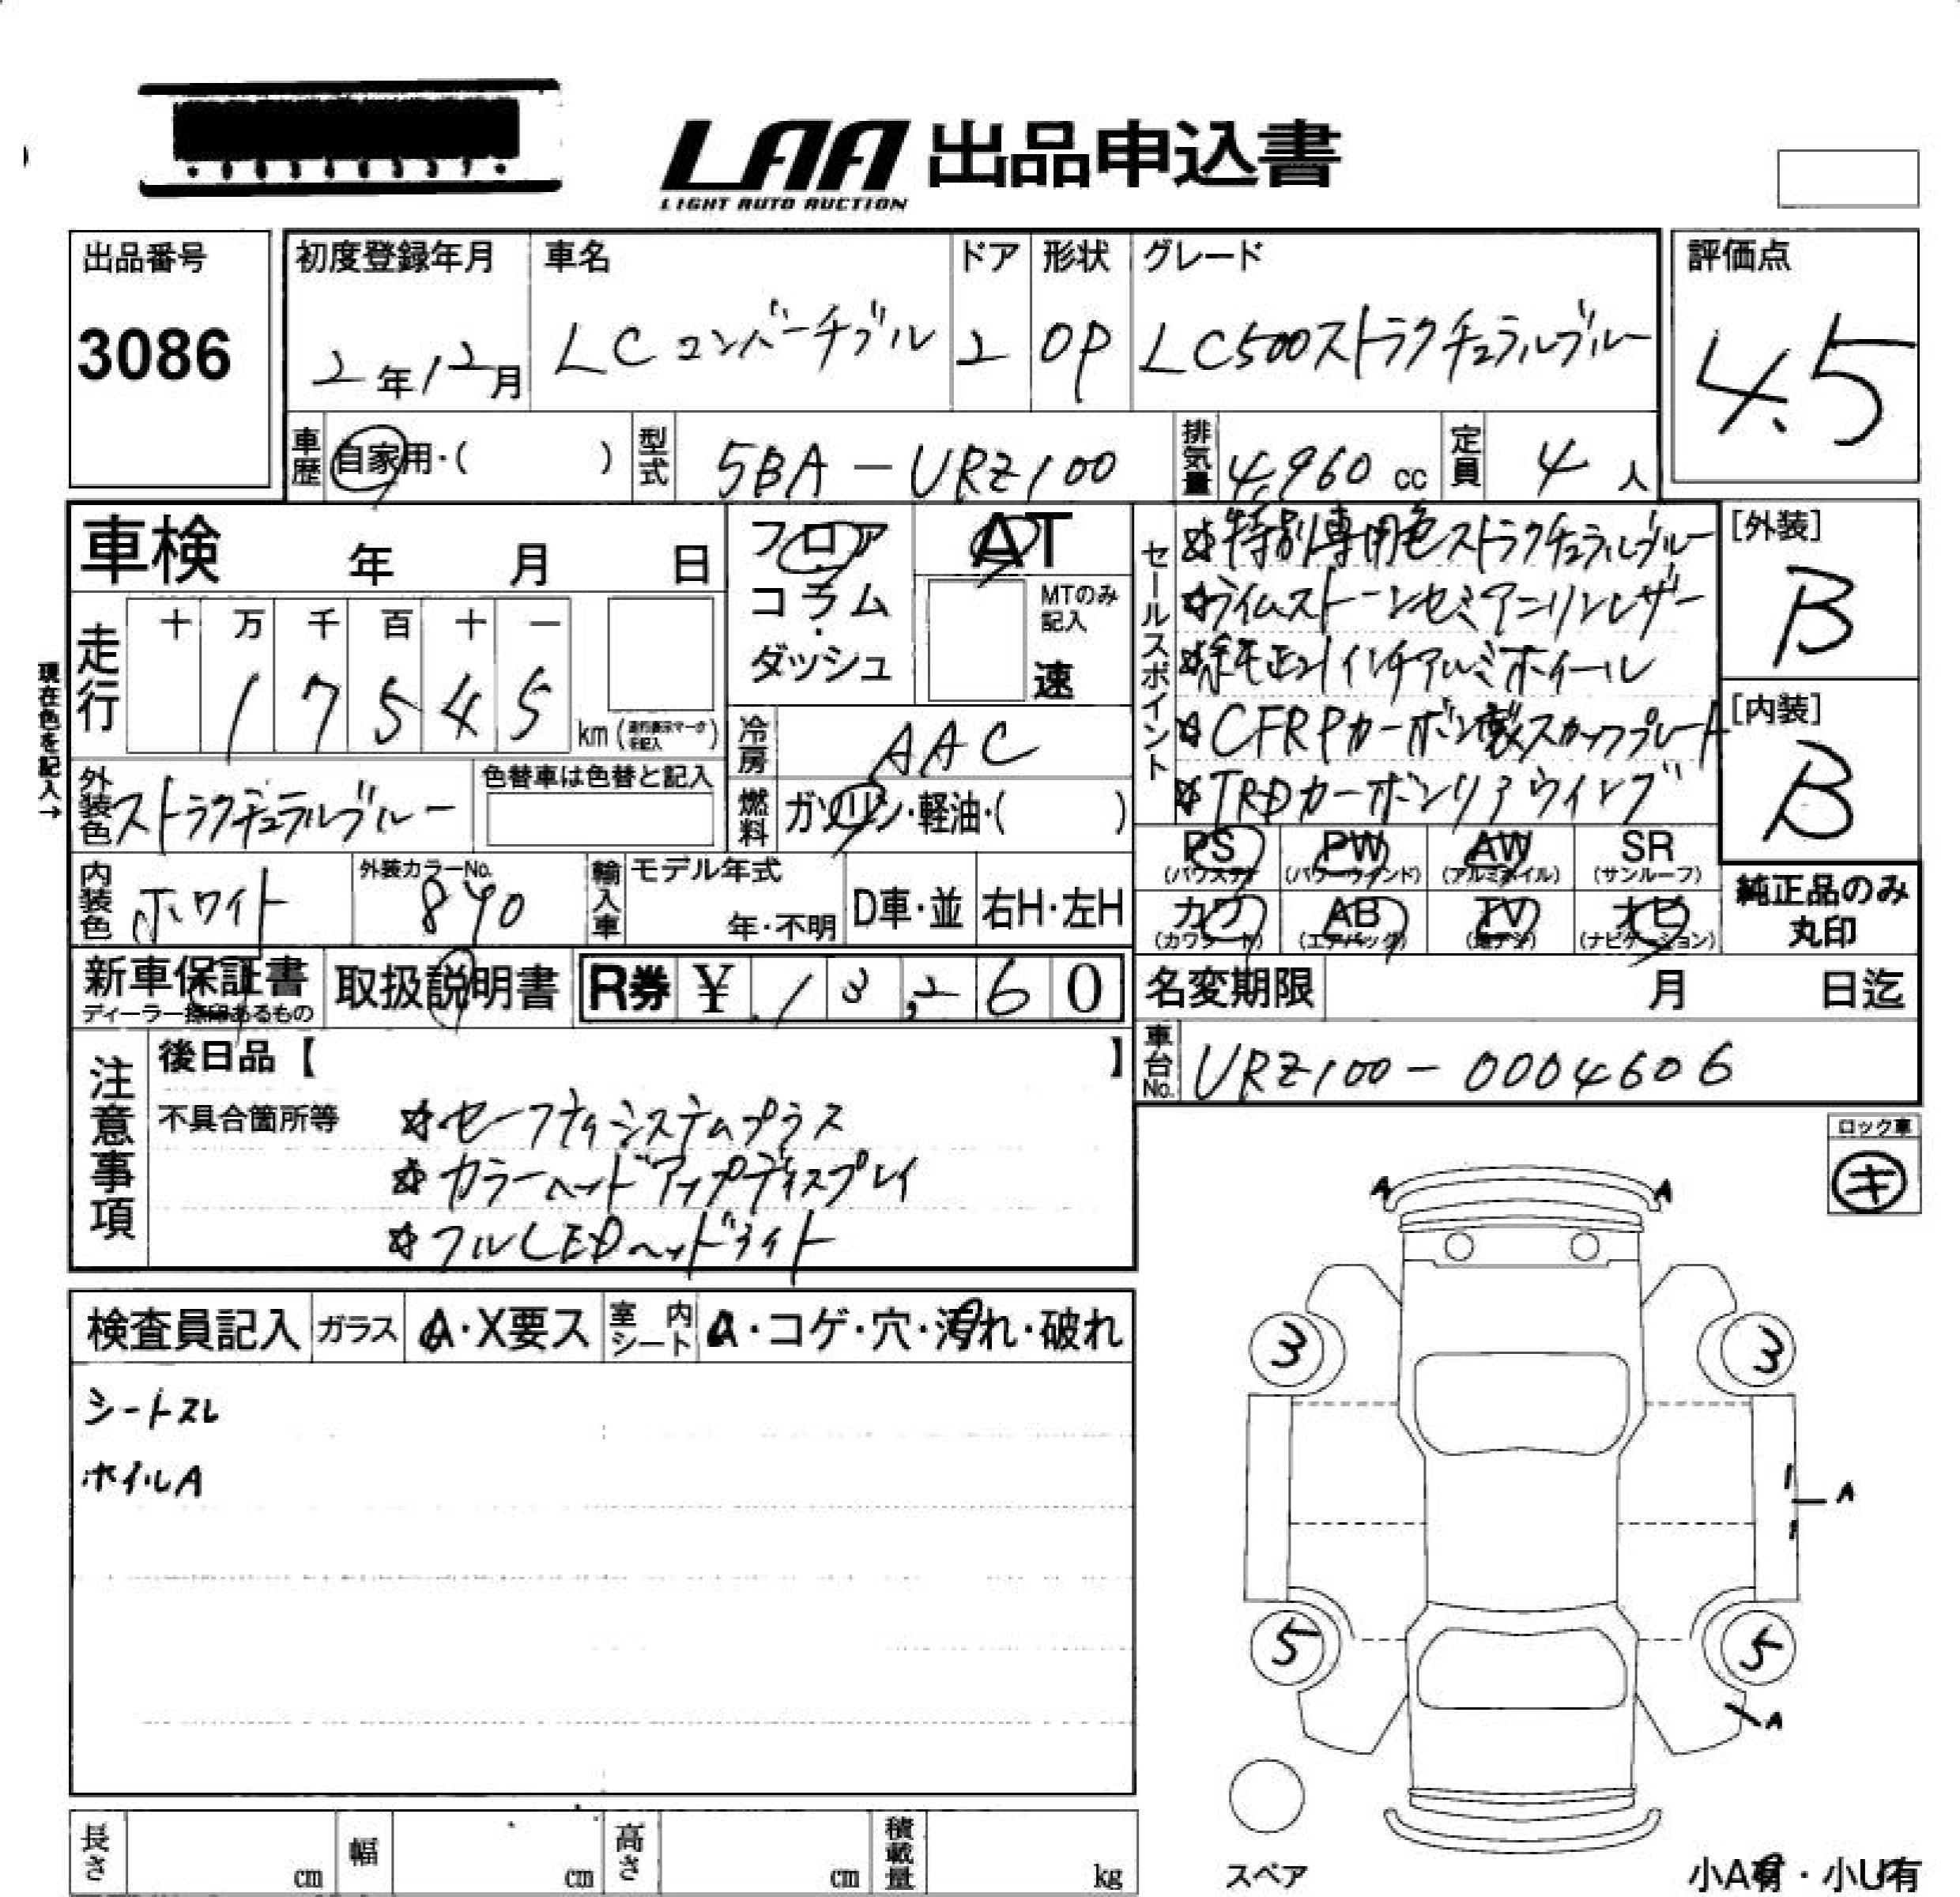 LAA 出品申込書
LIGHT AUTO AUCTION
出品番号
3086
初度登録年月
2年12月
車名
LCコンバーチブル
ドア
2
形状
OP
グレード
LC500ストラクチュラルブルー
評価点
4.5
車歴
自家用・( )
型式
5BA-URZ100
排気量
4,960 cc
定員
4人
車検 年 月 日
走行
十 万 千 百 十 一
1 7 5 4 5
km
現在色を記入→
外装色
ストラクチュラルブルー
色替車は色替と記入
内装色
ホワイト
外装カラーNo.
890
フロア
コラム
・
ダッシュ
AT
MTのみ
記入
速
冷房
AAC
燃料
ガソリン・軽油・( )
輸入車
モデル年式
年・不明
D車・並
右H・左H
セールスポイント
☆特別専用色ストラクチュラルブルー
☆ライムストーンセミアニリンレザー
☆純正21インチアルミホイール
☆CFRPカーボン製スカッフプレート
☆TRDカーボンリアウイング
[外装]
B
[内装]
B
PS
(パワステ)
PW
(パワーウインド)
AW
(アルミホイル)
SR
(サンルーフ)
カワ
(カワシート)
AB
(エアバッグ)
TV
(地デジ)
ナビ
(ナビゲーション)
純正品のみ
丸印
新車保証書
ディーラー捺印あるもの
取扱説明書
R券 ¥ 13,260
名変期限 月 日迄
車台No.
URZ100-0004606
注意事項
後日品【 】
不具合箇所等
☆セーフティシステムプラス
☆カラーヘッドアップディスプレイ
☆フルLEDヘッドライト
ロック車
キ
検査員記入
ガラス
A・X要ス
室内
シート
・コゲ・穴・汚れ・破れ
シートスレ
ホイルA
A A
3 3
A
5 5
A
スペア
小A有・小U有
長さ cm
幅 cm
高さ cm
積載量 kg